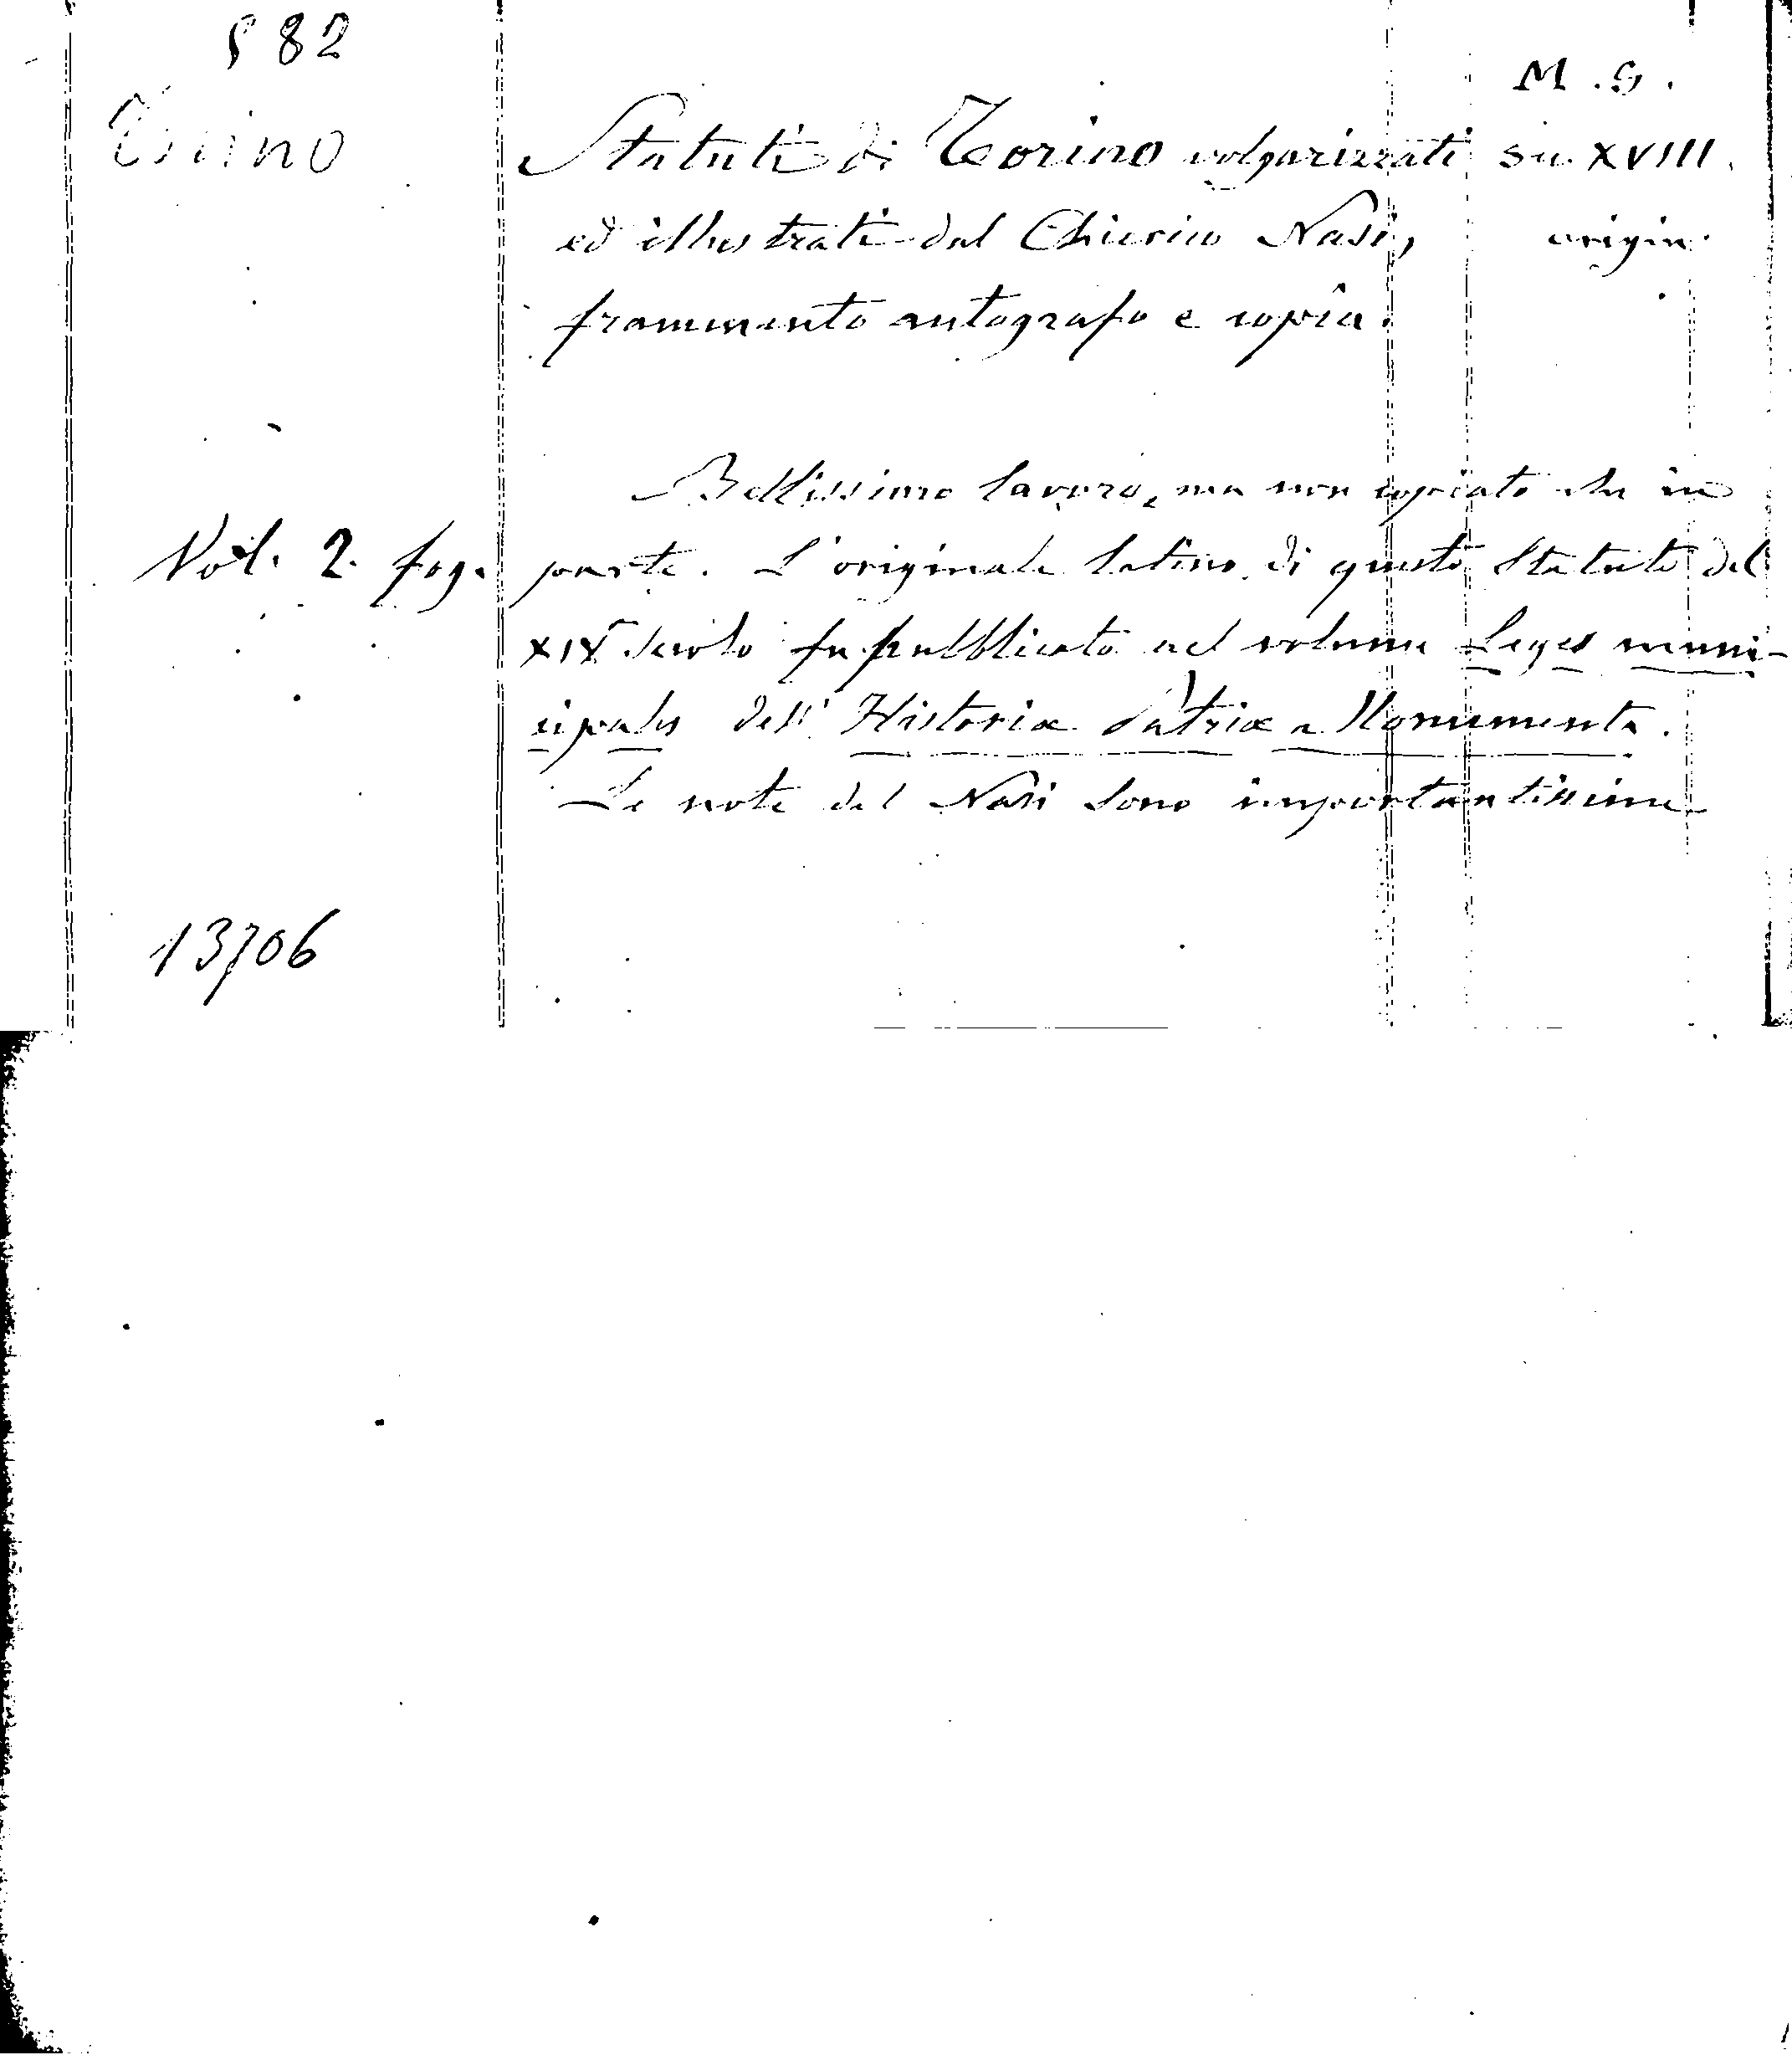 582
M. S.
Torino
Statuti di Torino volgarizzati
sec. XVIII.
ed illustrati dal Chierico Nasi,
origin.
frammento autografo e copia.
Bellissimo lavoro, ma non copiato che in
Vol. 2. fog.
parte. L'originale latino di questo Statuto del
XIV secolo fu pubblicato nel volume Leges muni-
cipales dell' Historiæ Patriæ Monumenta.
Le note del Nasi sono importantissime
13706